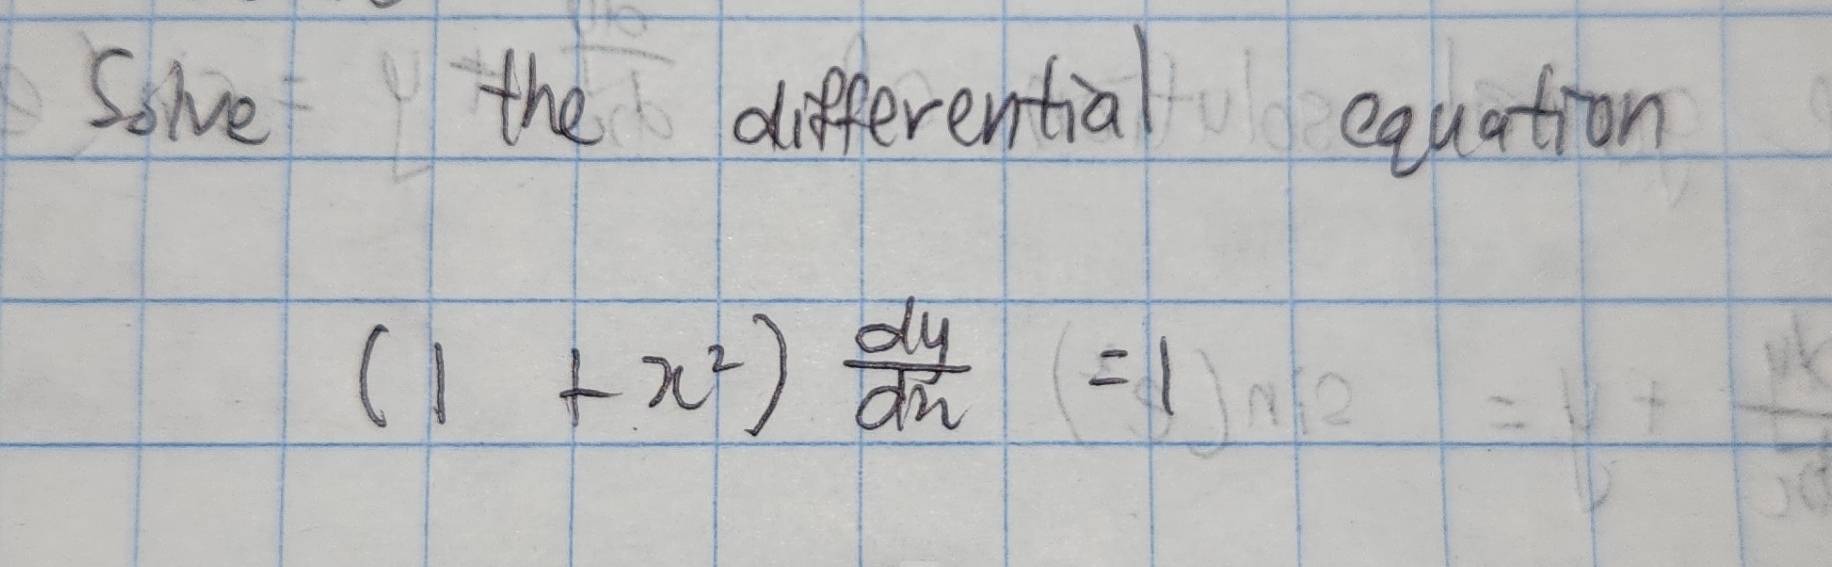 Solve the differential equation
(1 + x²) dy/dx = 1